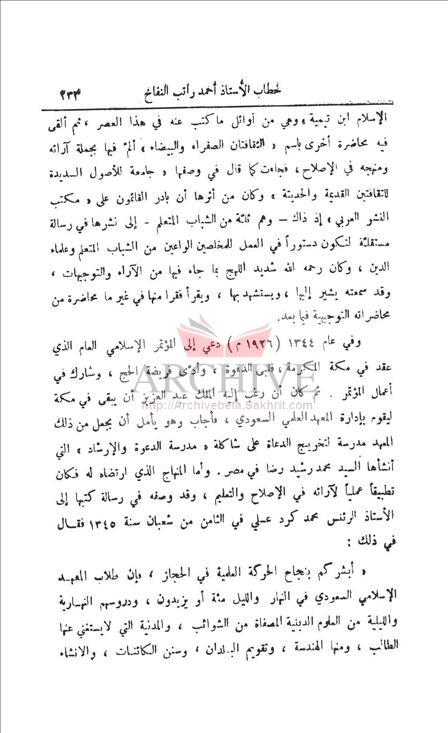 خطاب الأستاذ أحمد راتب النفاخ ٢٣٣
الإسلام ابن تيمية » وهي من أوائل ما كتب عنه في هذا العصر ، ثم ألقى
فيه محاضرة أخرى باسم « الثقافتان الصفراء والبيضاء » ألمّ فيها بجملة آرائه
ومنهجه في الإصلاح ، فجاءت كما قال في وصفها « جامعة للأصول السديدة
للثقافتين القديمة والحديثة » وكان من أثرها أن بادر القائمون على « مكتب
النشر العربي » إذ ذاك – وهم ثلة من الشباب المتعلم - إلى نشرها في رسالة
مستقلة لتكون دستوراً في العمل للمخلصين الواعين من الشباب المتعلم وعلماء
الدين ، وكان رحمه الله شديد اللهج بما جاء فيها من الآراء والتوجيهات ،
وقد سمعته يشير إليها ، ويستشهد بها ، ويقرأ فقرا منها في غير ما محاضرة من
محاضراته التوجيهية فيما بعد.
وفي عام ١٣٤٤ ( ١٩٢٦ م ) دعي إلى المؤتمر الإسلامي العام الذي
عقد في مكة المكرمة ، فلبى الدعوة ، وأدى فريضة الحج ، وشارك في
ARCHIVE
أعمال المؤتمر . ثم كان أن رغب إليه الملك عبد العزيز أن يبقى في مكة
http://Archivebeta.Sakhrit.com
ليقوم بإدارة المعهد العلمي السعودي ، فأجاب وهو يأمل أن يجعل من ذلك
المعهد مدرسة لتخريج الدعاة على شاكلة « مدرسة الدعوة والإرشاد » التي
أنشأها السيد محمد رشيد رضا في مصر . وأما المنهاج الذي ارتضاه له فكان
تطبيقاً عملياً لآرائه في الإصلاح والتعليم ، وقد وصفه في رسالة كتبها إلى
الأستاذ الرئيس محمد كرد علي في الثامن من شعبان سنة ١٣٤٥ فقال
في ذلك :
« أبشركم بنجاح الحركة العلمية في الحجاز ، فإن طلاب المعهد
الإسلامي السعودي في النهار والليل مئة أو يزيدون ، ودروسهم النهارية
والليلية من العلوم الدينية المصفاة من الشوائب ، والمدنية التي لا يستغني عنها
الطالب ، ومنها الهندسة ، وتقويم البلدان ، وسنن الكائنات ، والانشاء